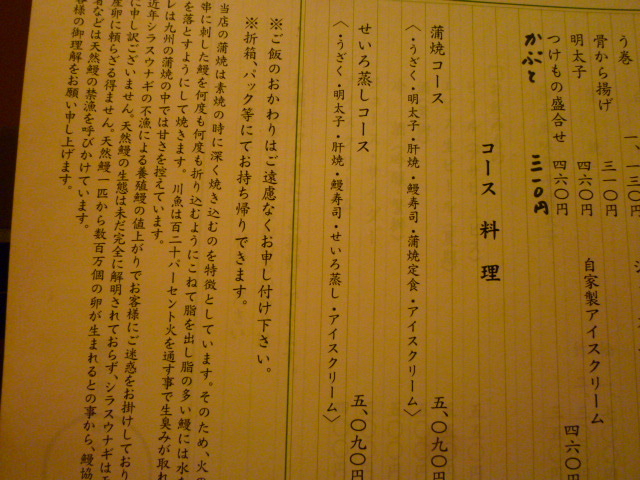 う巻 一、一三〇円
骨から揚げ 三一〇円
明太子 四六〇円
つけもの盛合せ 四六〇円
かぶと 三一〇円
自家製アイスクリーム 四六〇円
コース 料理
蒲焼コース 五、〇九〇円
〈・うざく・明太子・肝焼・鰻寿司・蒲焼定食・アイスクリーム〉
せいろ蒸しコース 五、〇九〇円
〈・うざく・明太子・肝焼・鰻寿司・せいろ蒸し・アイスクリーム〉
※ご飯のおかわりはご遠慮なくお申し付け下さい。
※折箱、パック等にてお持ち帰りできます。
当店の蒲焼は素焼の時に深く焼き込むのを特徴としています。そのため、火の
串に刺した鰻を何度も何度も折り込むようにこねて脂を出し脂の多い鰻には水を
を落とすようにして焼きます。川魚は百二十パーセント火を通す事で生臭みが取れ
レは九州の蒲焼の中では甘さを控えています。
近年シラスウナギの不漁による養殖鰻の値上がりでお客様にご迷惑をお掛けしており
に申し訳ございません。天然鰻の生態は未だ完全に解明されておらず、シラスウナギは
産卵に頼らざる得ません。天然鰻一匹から数百万個の卵が生まれるとの事から、鰻協
などは天然鰻の禁漁を呼びかけています。
様の御理解をお願い申し上げます。